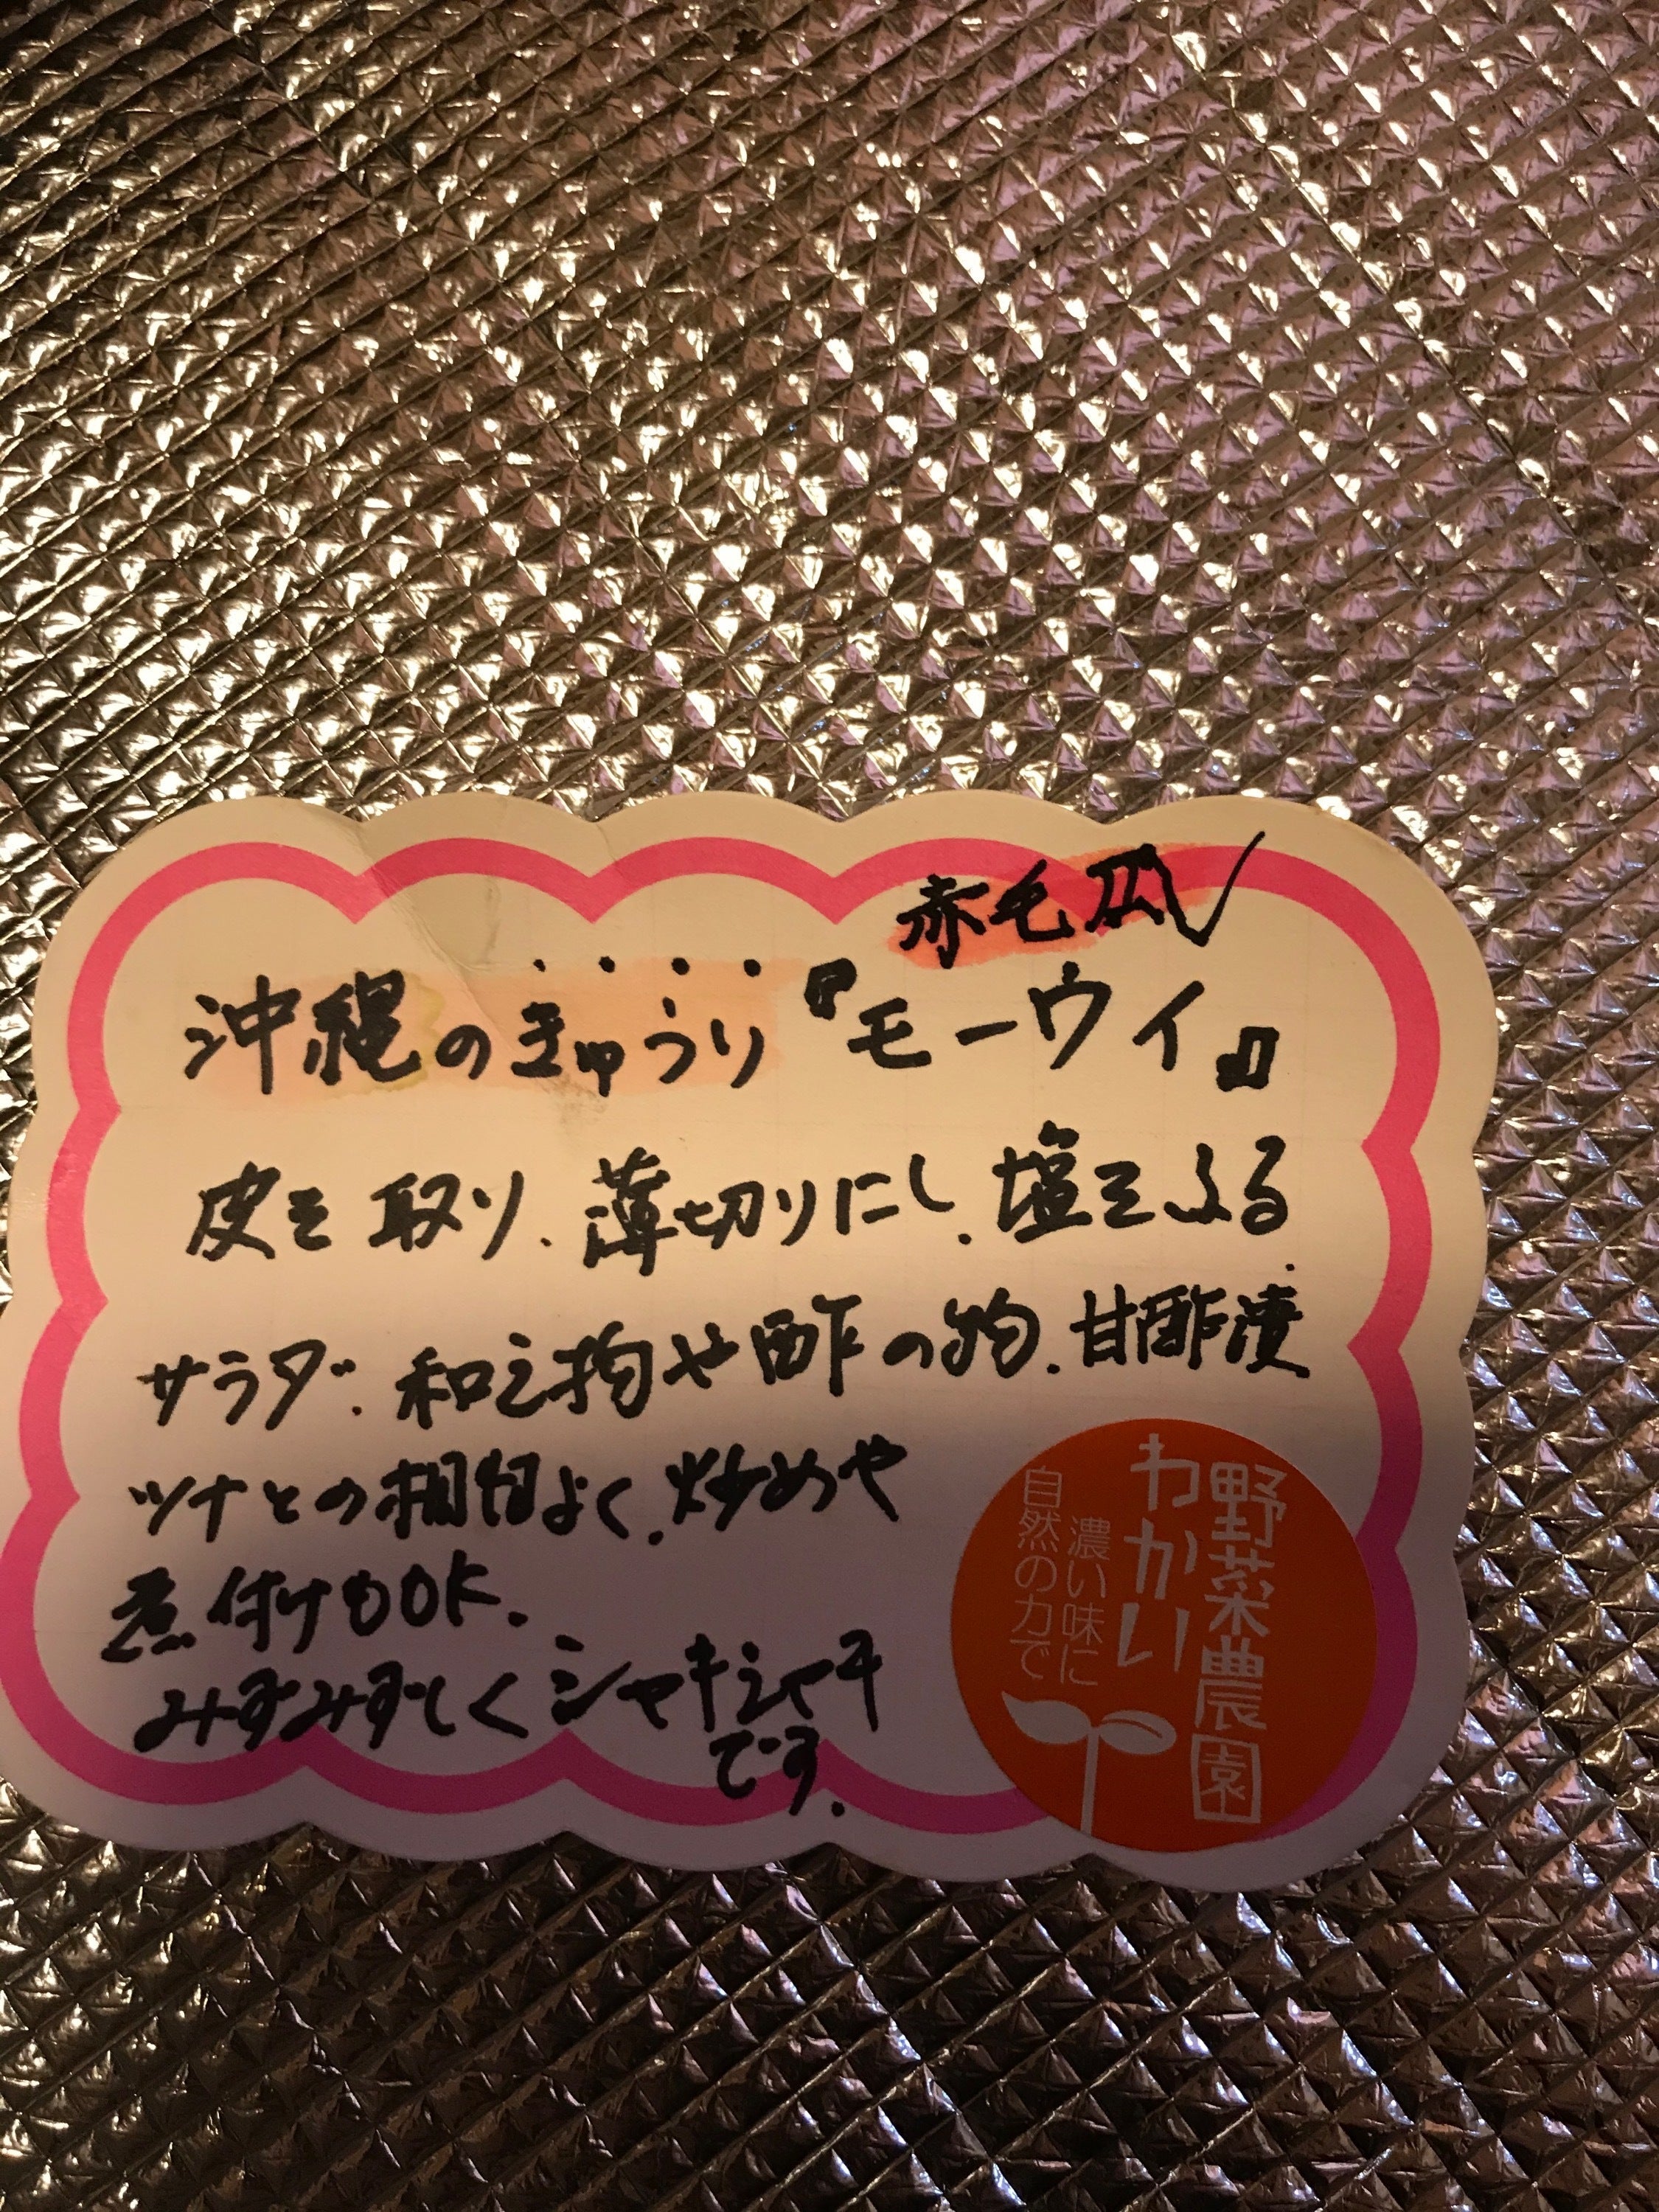 赤毛瓜
沖縄のきゅうり『モーウイ』
皮を取り、薄切りにし、塩をふる。
サラダ、和え物や酢の物、甘酢漬
ツナとの相性よく、炒めや
煮付けもOK.
みずみずしくシャキシャキ
です。
野菜農園
わかい
濃い味に
自然の力で